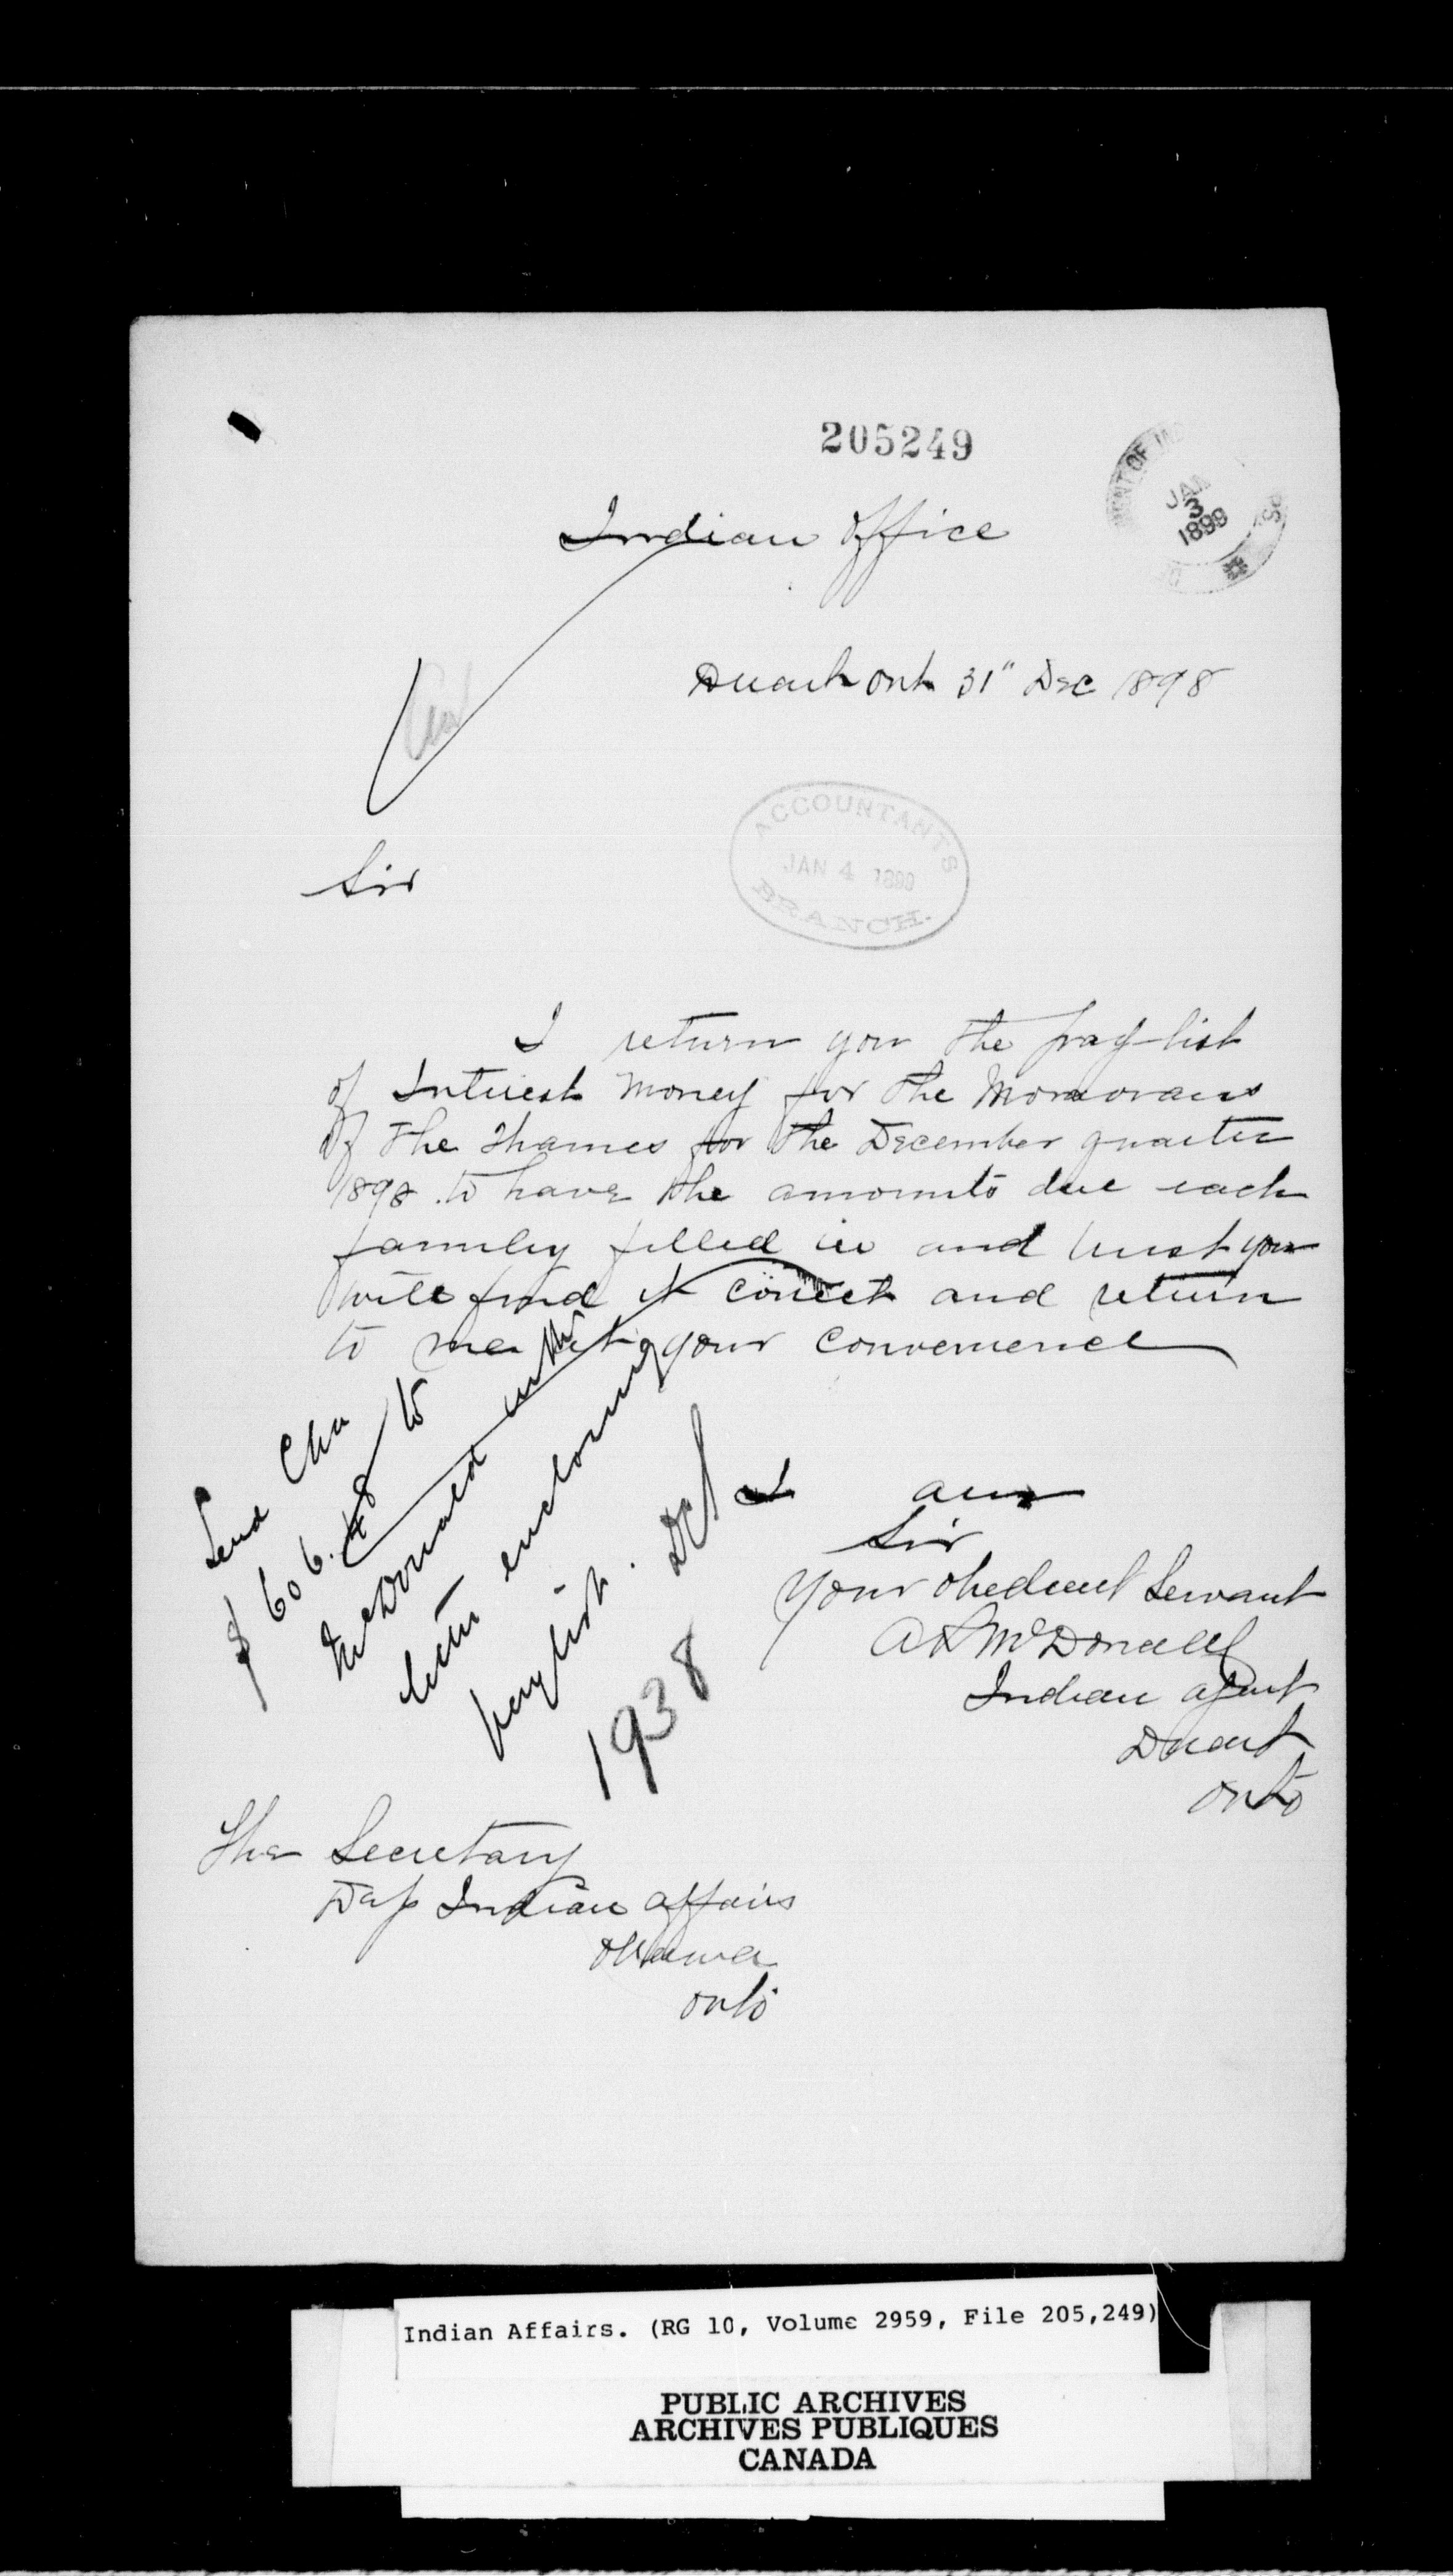 205249
Indian Office
MENT OF IN
JAN
3
1899
Duart Ont 31" Dec 1898
ACCOUNTANTS
JAN 4 1899
BRANCH.
Sir
I return you the pay-list
of Interest Money for the Moravans
of the Thames for the December quarter
1898 to have the amounts due each
family filled in and trust you
will find it correct and return
to me at your convenience
Send Chq
$ 606.48 to
McDonald with
letter enclosing
paylist. DCS
1938
I am
Sir
Your obedient Servant
A R McDonell
Indian agent
Duart
Onto
The Secretary
Dep Indian affairs
Ottawa
Onto
Indian Affairs. (RG 10, Volume 2959, File 205,249)
PUBLIC ARCHIVES
ARCHIVES PUBLIQUES
CANADA